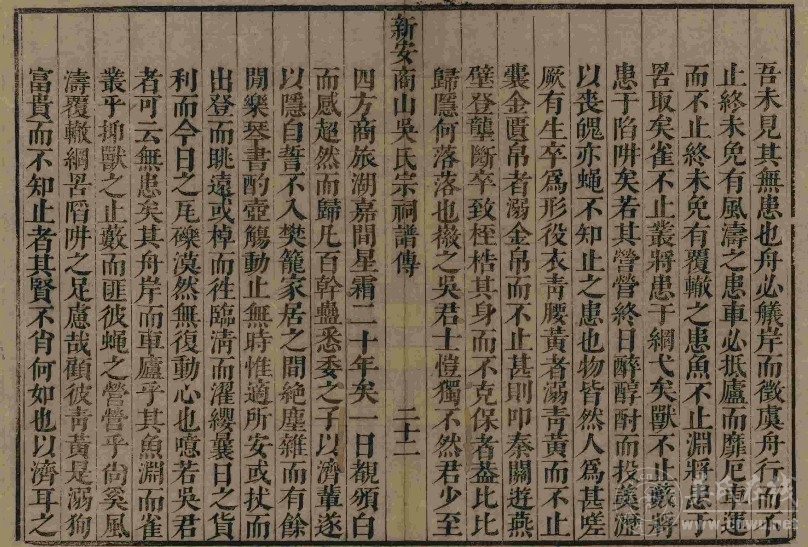 吾未見其無患也舟必艤岸而徵虞舟行而不
止終未免有風濤之患車必抵廬而靡厄車運
而不止終未免有覆轍之患魚不止淵將患于
罟取矣雀不止叢將患于網弋矣獸不止藪將
患于陷阱矣若其營營終日醉醇酎而投羹瀋
以喪魄亦蠅不知止之患也物皆然人為甚嗟
厥有生卒為形役衣青腰黃者溺青黃而不止
囊金賈帛者溺金帛而不止甚則叩秦關遊燕
壁登龔斷卒致桎梏其身而不克保者葢比比
歸隱何落落也檄之吳君士愷獨不然君少至
新安商山吳氏宗祠譜傳
二十二
四方商旅湖嘉間星霜二十年矣一日覩頒白
而感超然而歸凡百幹蠱悉委之子以濟輩遂
以隱自誓不入樊籠家居之間絶塵雜而有餘
閒樂琴書酌壺觴動止無時惟適所安或扙而
出登而眺遠或棹而徃臨清而濯纓曩日之貨
利而今日之瓦礫漠然無復動心也噫若吳君
者可云無患矣其舟岸而車廬乎其魚淵而雀
叢乎抑獸之止藪而匪彼蠅之營營乎尚奚風
濤覆轍網罟陷阱之足慮哉顧彼靑黃是溺狥
富貴而不知止者其賢不肖何如也以濟耳之
www.cnwu.net